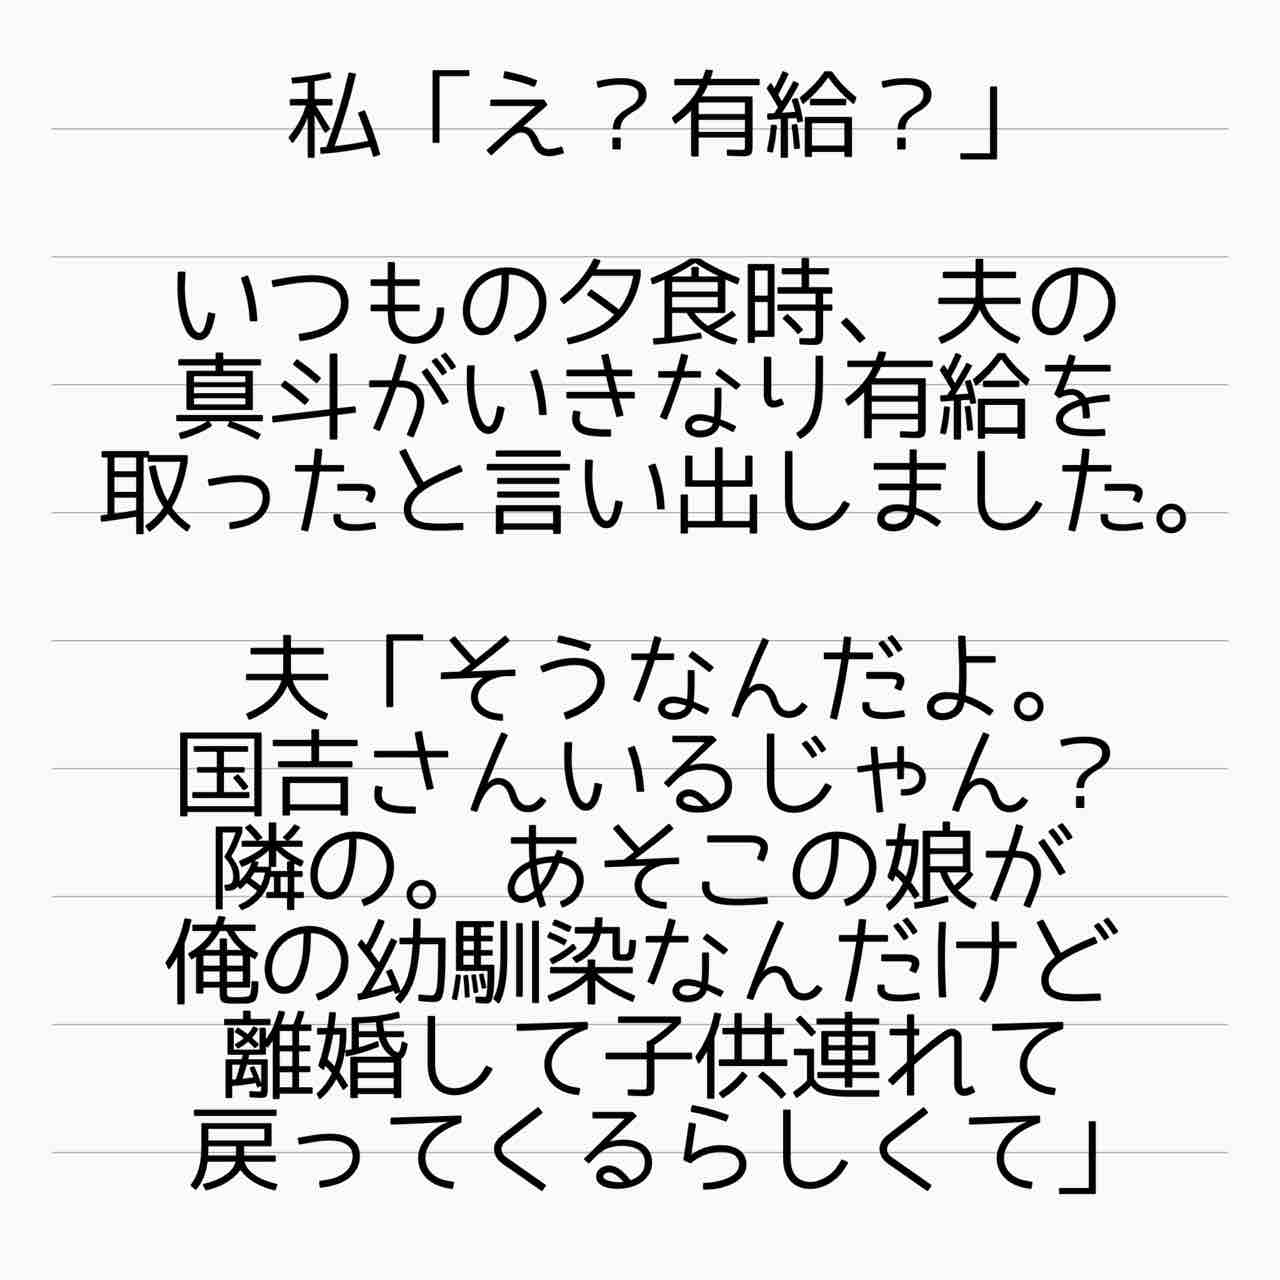 私「え？有給？」
いつもの夕食時、夫の
真斗がいきなり有給を
取ったと言い出しました。
夫「そうなんだよ。
国吉さんいるじゃん？
隣の。あそこの娘が
俺の幼馴染なんだけど
離婚して子供連れて
戻ってくるらしくて」